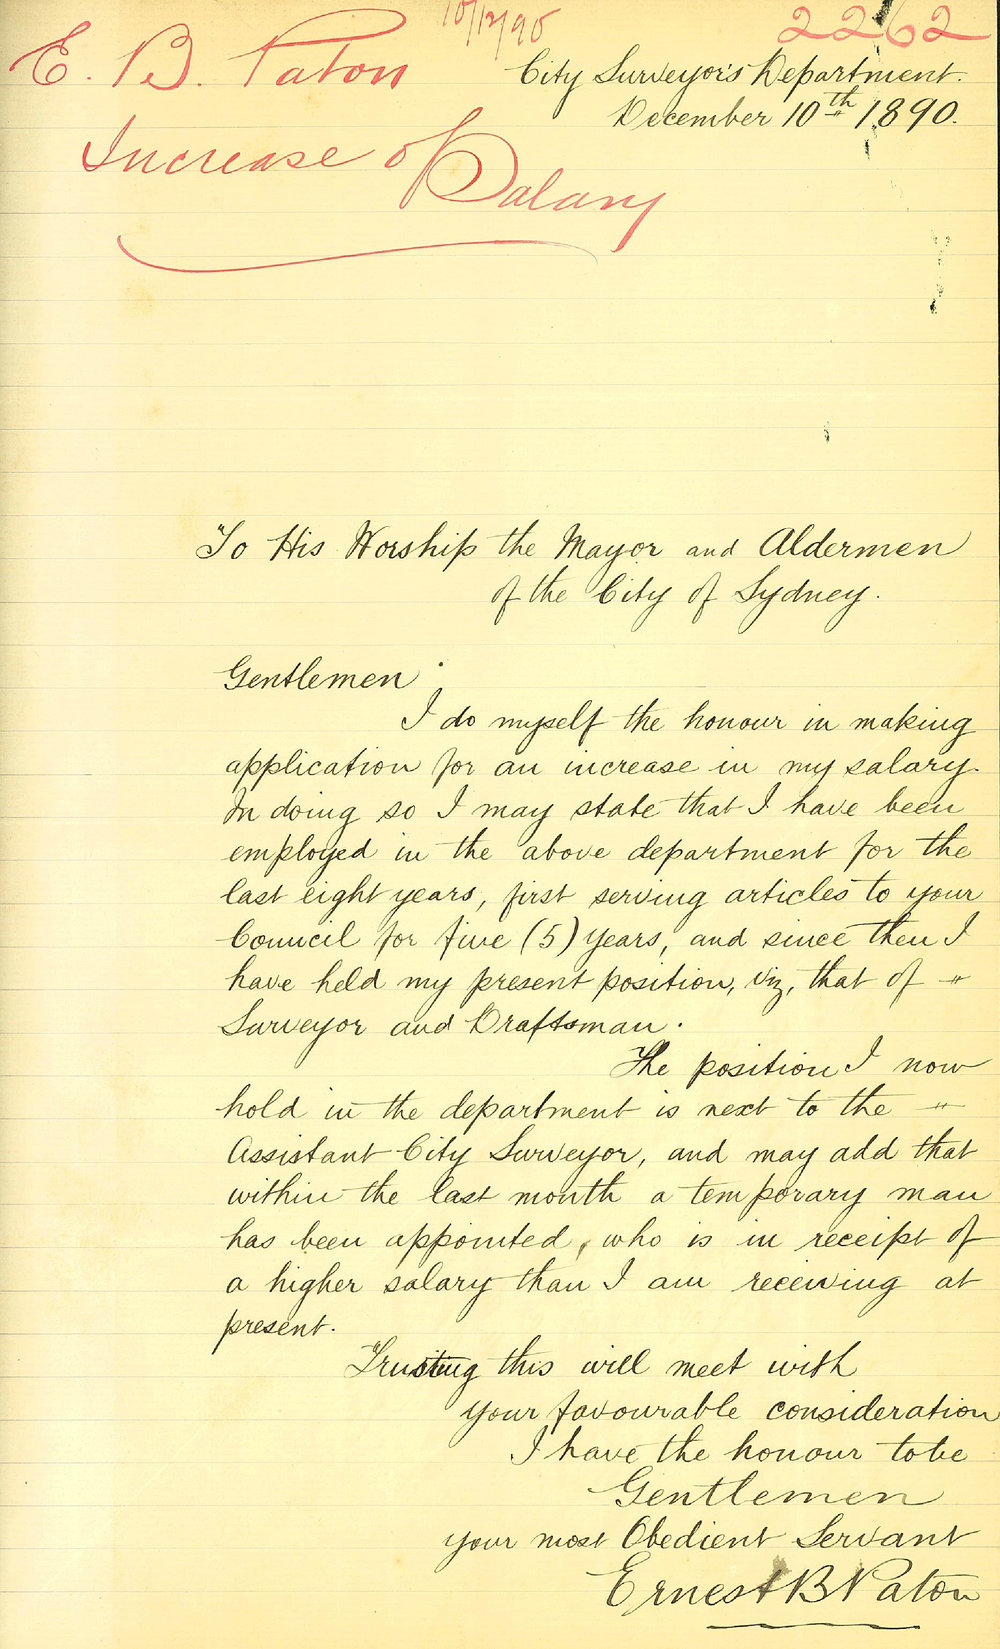 10/12/90
2262
E. B. Paton
Increase of Salary
City Surveyor's Department.
December 10th 1890.
To His Worship the Mayor and Aldermen
of the City of Sydney.
Gentlemen
I do myself the honour in making
application for an increase in my salary.
In doing so I may state that I have been
employed in the above department for the
last eight years, first serving articles to your
Council for five (5) years, and since then I
have held my present position, viz, that of
Surveyor and Draftsman.
The position I now
hold in the department is next to the
Assistant City Surveyor, and may add that
within the last month a temporary man
has been appointed, who is in receipt of
a higher salary than I am receiving at
present.
Trusting this will meet with
your favourable consideration
I have the honour to be
Gentlemen
your most Obedient Servant
Ernest B Paton